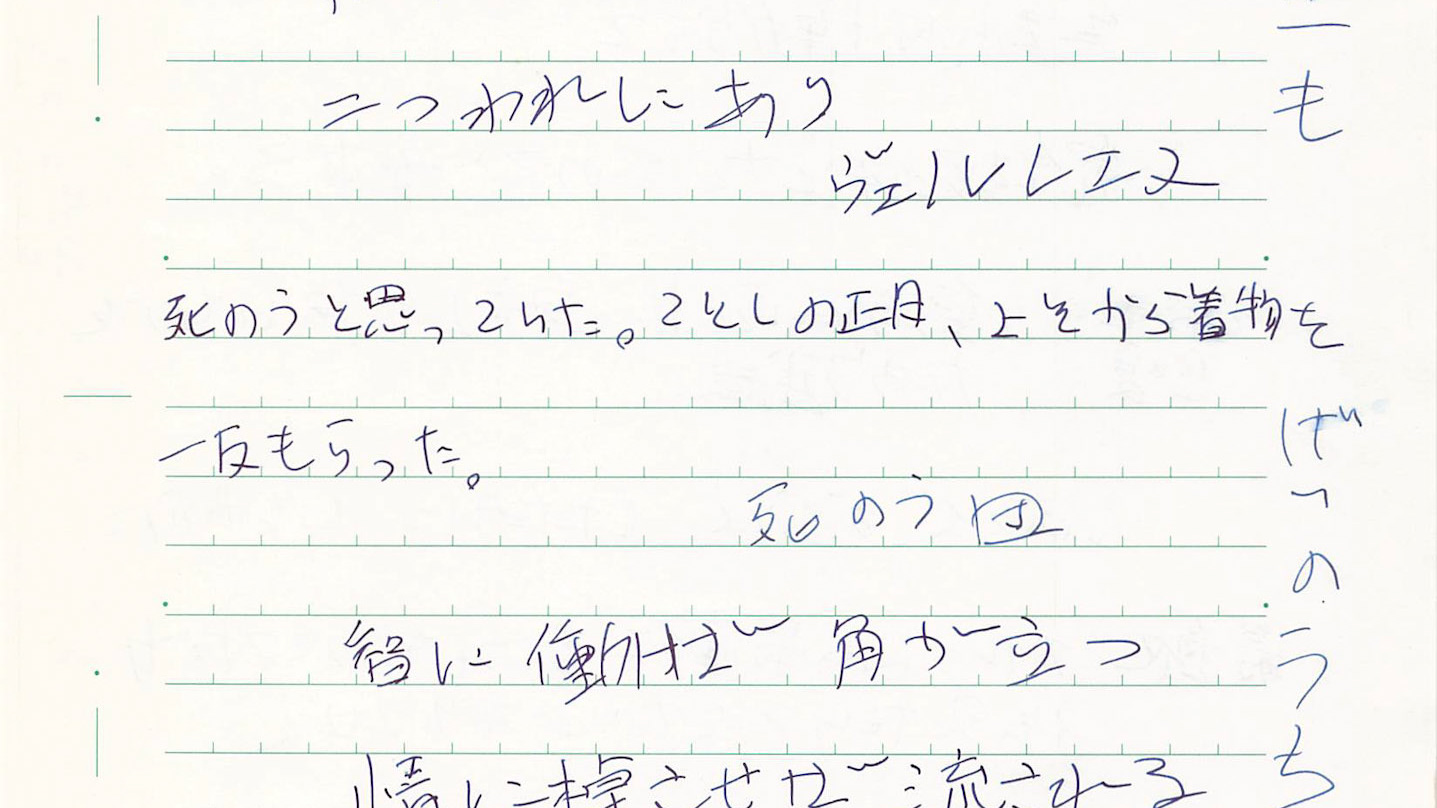 二つわれにあり
ヴェルレエヌ
死のうと思っていた。ことしの正月、よそから着物を
一反もらった。
死のう団
智に働けば角が立つ
情に棹させば流される
も
げつのうち